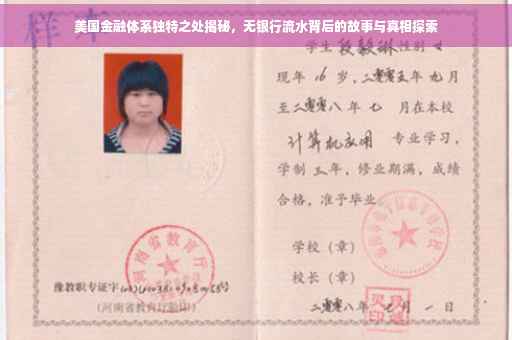 美国金融体系独特之处揭秘，无银行流水背后的故事与真相探索
样本
学生段毅琳性别女
现年16岁，二零零五年九月
至二零零八年七月在本校
计算机应用 专业学习，
学制三年，修业期满，成绩
合格，准予毕业
学校（章）
校长（章）
二零零八年 月一日
河南省教育厅
豫教职专证字
（河南省教育厅验印）